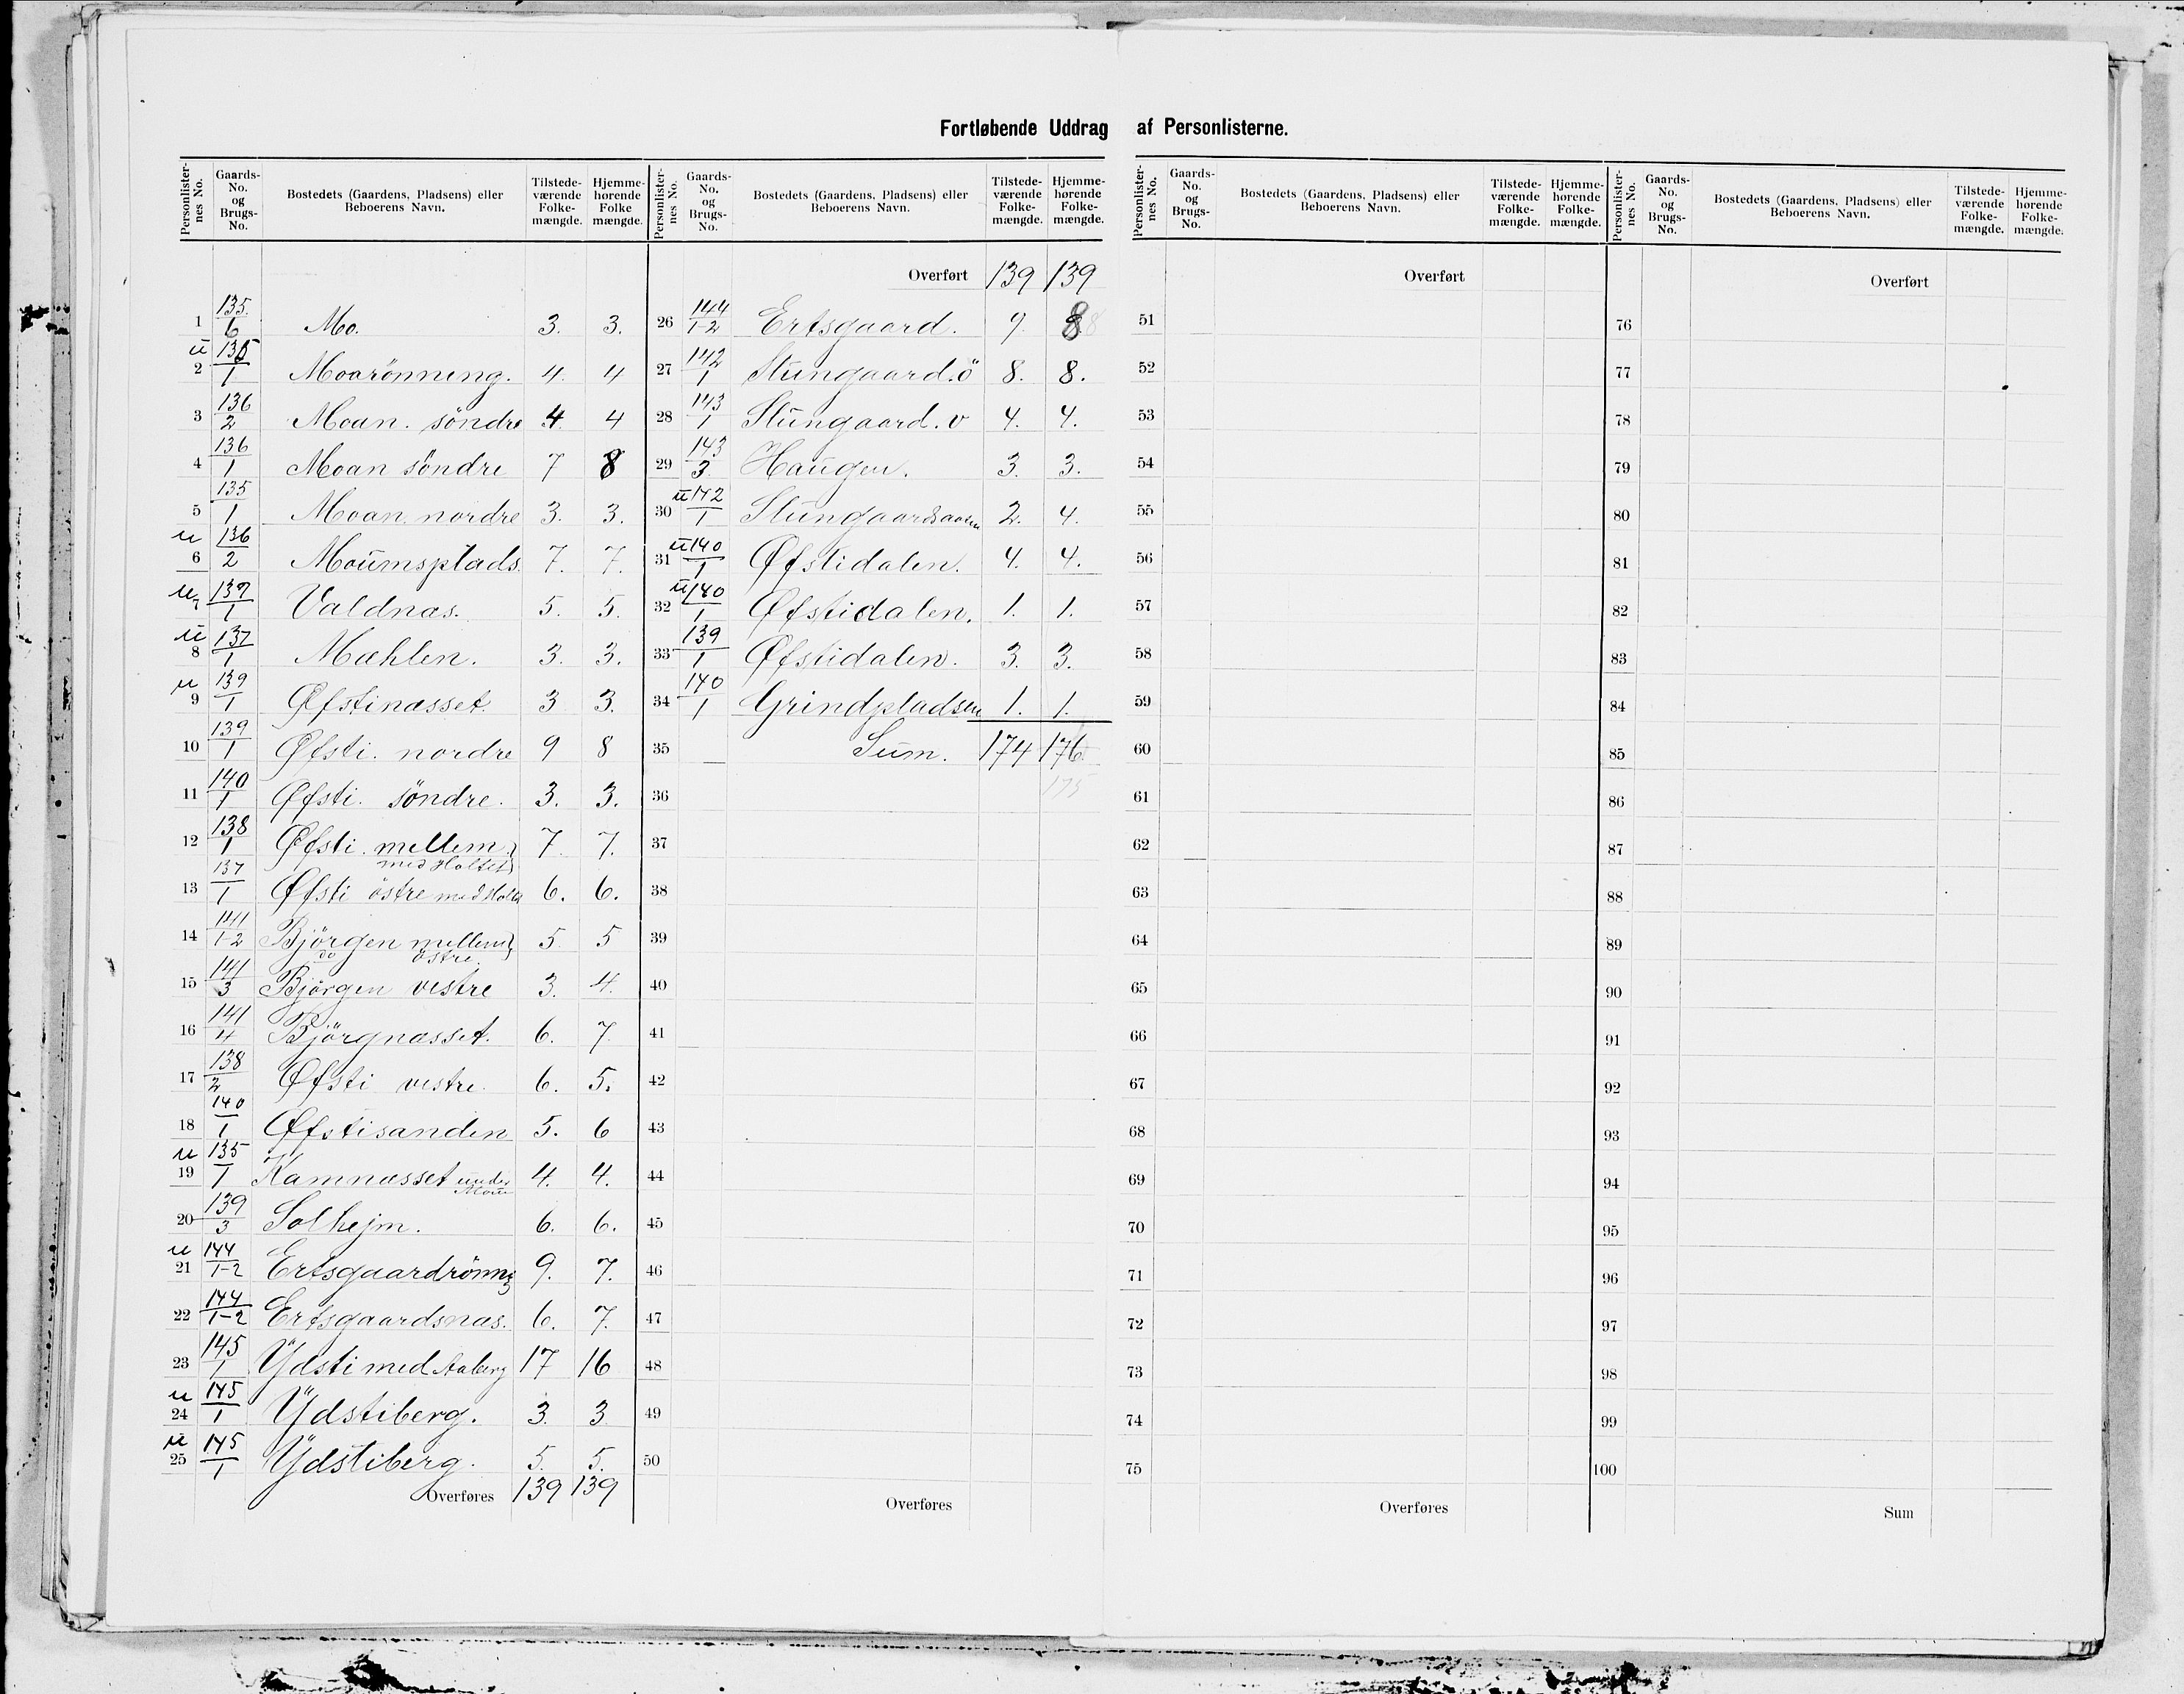 Fortløbende Uddrag af Personlisterne.
Personlister-nes No. Gaards-No. og Brugs-No. Bostedets (Gaardens, Pladsens) eller Beboerens Navn. Tilstede-værende Folke-mængde. Hjemme-hørende Folke mængde.
1 135/6 Mo. 3. 3.
u 2 135/1 Moarönning. 4. 4
3 136/2 Moan. söndre 4. 4
4 136/1 Moan söndre 7 8
5 135/1 Moan. nordre 3. 3.
u 6 136/2 Moumsplads. 7. 7.
u 7 137/1 Valdnas. 5. 5.
u 8 137/1 Mæhlen. 3. 3.
u 9 139/1 Øfstinæsset. 3 3.
10 139/1 Øfsti. nordre 9 8
11 140/1 Øfsti. söndre. 3. 3.
12 138/1 Øfsti. mellem 7. 7.
med Holtet
13 137/1 Øfsti östre med Holtet 6. 6.
14 141/1-2 Björgen mellem 5. 5
do östre.
15 141/3 Björgen vestre 3. 4.
16 141/4 Björgnæsset. 6. 7.
17 138/2 Øfsti vestre. 6. 5.
18 140/1 Øfstisanden 5. 6
u 19 135/1 Kamnæsset under Moan 4. 4.
20 139/3 Solhejm. 6. 6.
u 21 144/1-2 Ertsgaardrönning 9. 7.
22 144/1-2 Ertsgaardsnæs. 6. 7.
23 145/1 Ydsti med Aaberg 17 16
u 24 145/1 Ydstiberg. 3. 3
u 25 145/1 Ydstiberg. 5. 5.
Overføres 139 139
Personlister-nes No. Gaards-No. og Brugs-No. Bostedets (Gaardens, Pladsens) eller Beboerens Navn. Tilstede-værende Folke-mængde. Hjemme-hørende Folke-mængde.
Overført 139 139
26 144/1-2 Ertsgaard. 9. 8 8
27 142/1 Stungaard. ö 8. 8.
28 143/1 Stungaard. v 4. 4.
29 143/3 Haugen. 3. 3.
30 u 142/1 Stungaardsaasen 2. 4.
31 u 140/1 Øfstidalen. 4. 4.
32 u 140/1 Øfstidalen. 1. 1.
33 139/1 Øfstidalen. 3. 3.
34 140/1 Grindpladsen 1. 1.
35 Sum. 174 176
36 175
37
38
39
40
41
42
43
44
45
46
47
48
49
50
Overføres
Personlister-nes No. Gaards-No. og Brugs-No. Bostedets (Gaardens, Pladsens) eller Beboerens Navn. Tilstede-værende Folke-mængde. Hjemme-hørende Folke-mængde.
Overført
51
52
53
54
55
56
57
58
59
60
61
62
63
64
65
66
67
68
69
70
71
72
73
74
75
Overføres
Personlister-nes No. Gaards-No. og Brugs-No. Bostedets (Gaardens, Pladsens) eller Beboerens Navn. Tilstede-værende Folke-mængde. Hjemme-hørende Folke-mængde.
Overført
76
77
78
79
80
81
82
83
84
85
86
87
88
89
90
91
92
93
94
95
96
97
98
99
100
Sum